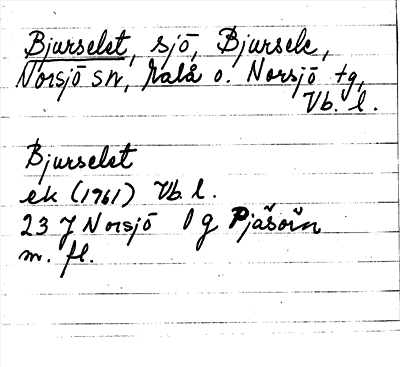 Bjurselet, sjö, Bjursele,
Norsjö sn, Malå o. Norsjö tg,
Vb. l.
Bjurselet
ek (1961) Vb. l.
23 J Norsjö 1 g
m. fl.